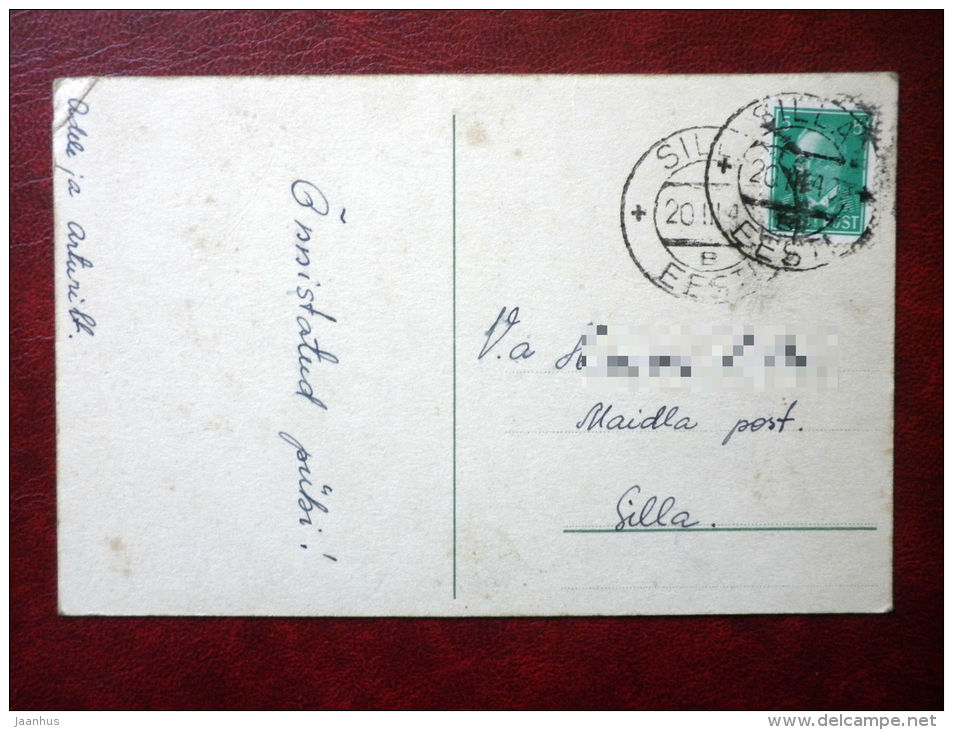 Adele ja Arturilt.
Õnnistatud pühi!
V.a
Maidla post.
Silla.
SILLA
20 III 4
B
EESTI
SILLA
EESTI
5
5
POST
jaanhus
www.delcampe.net